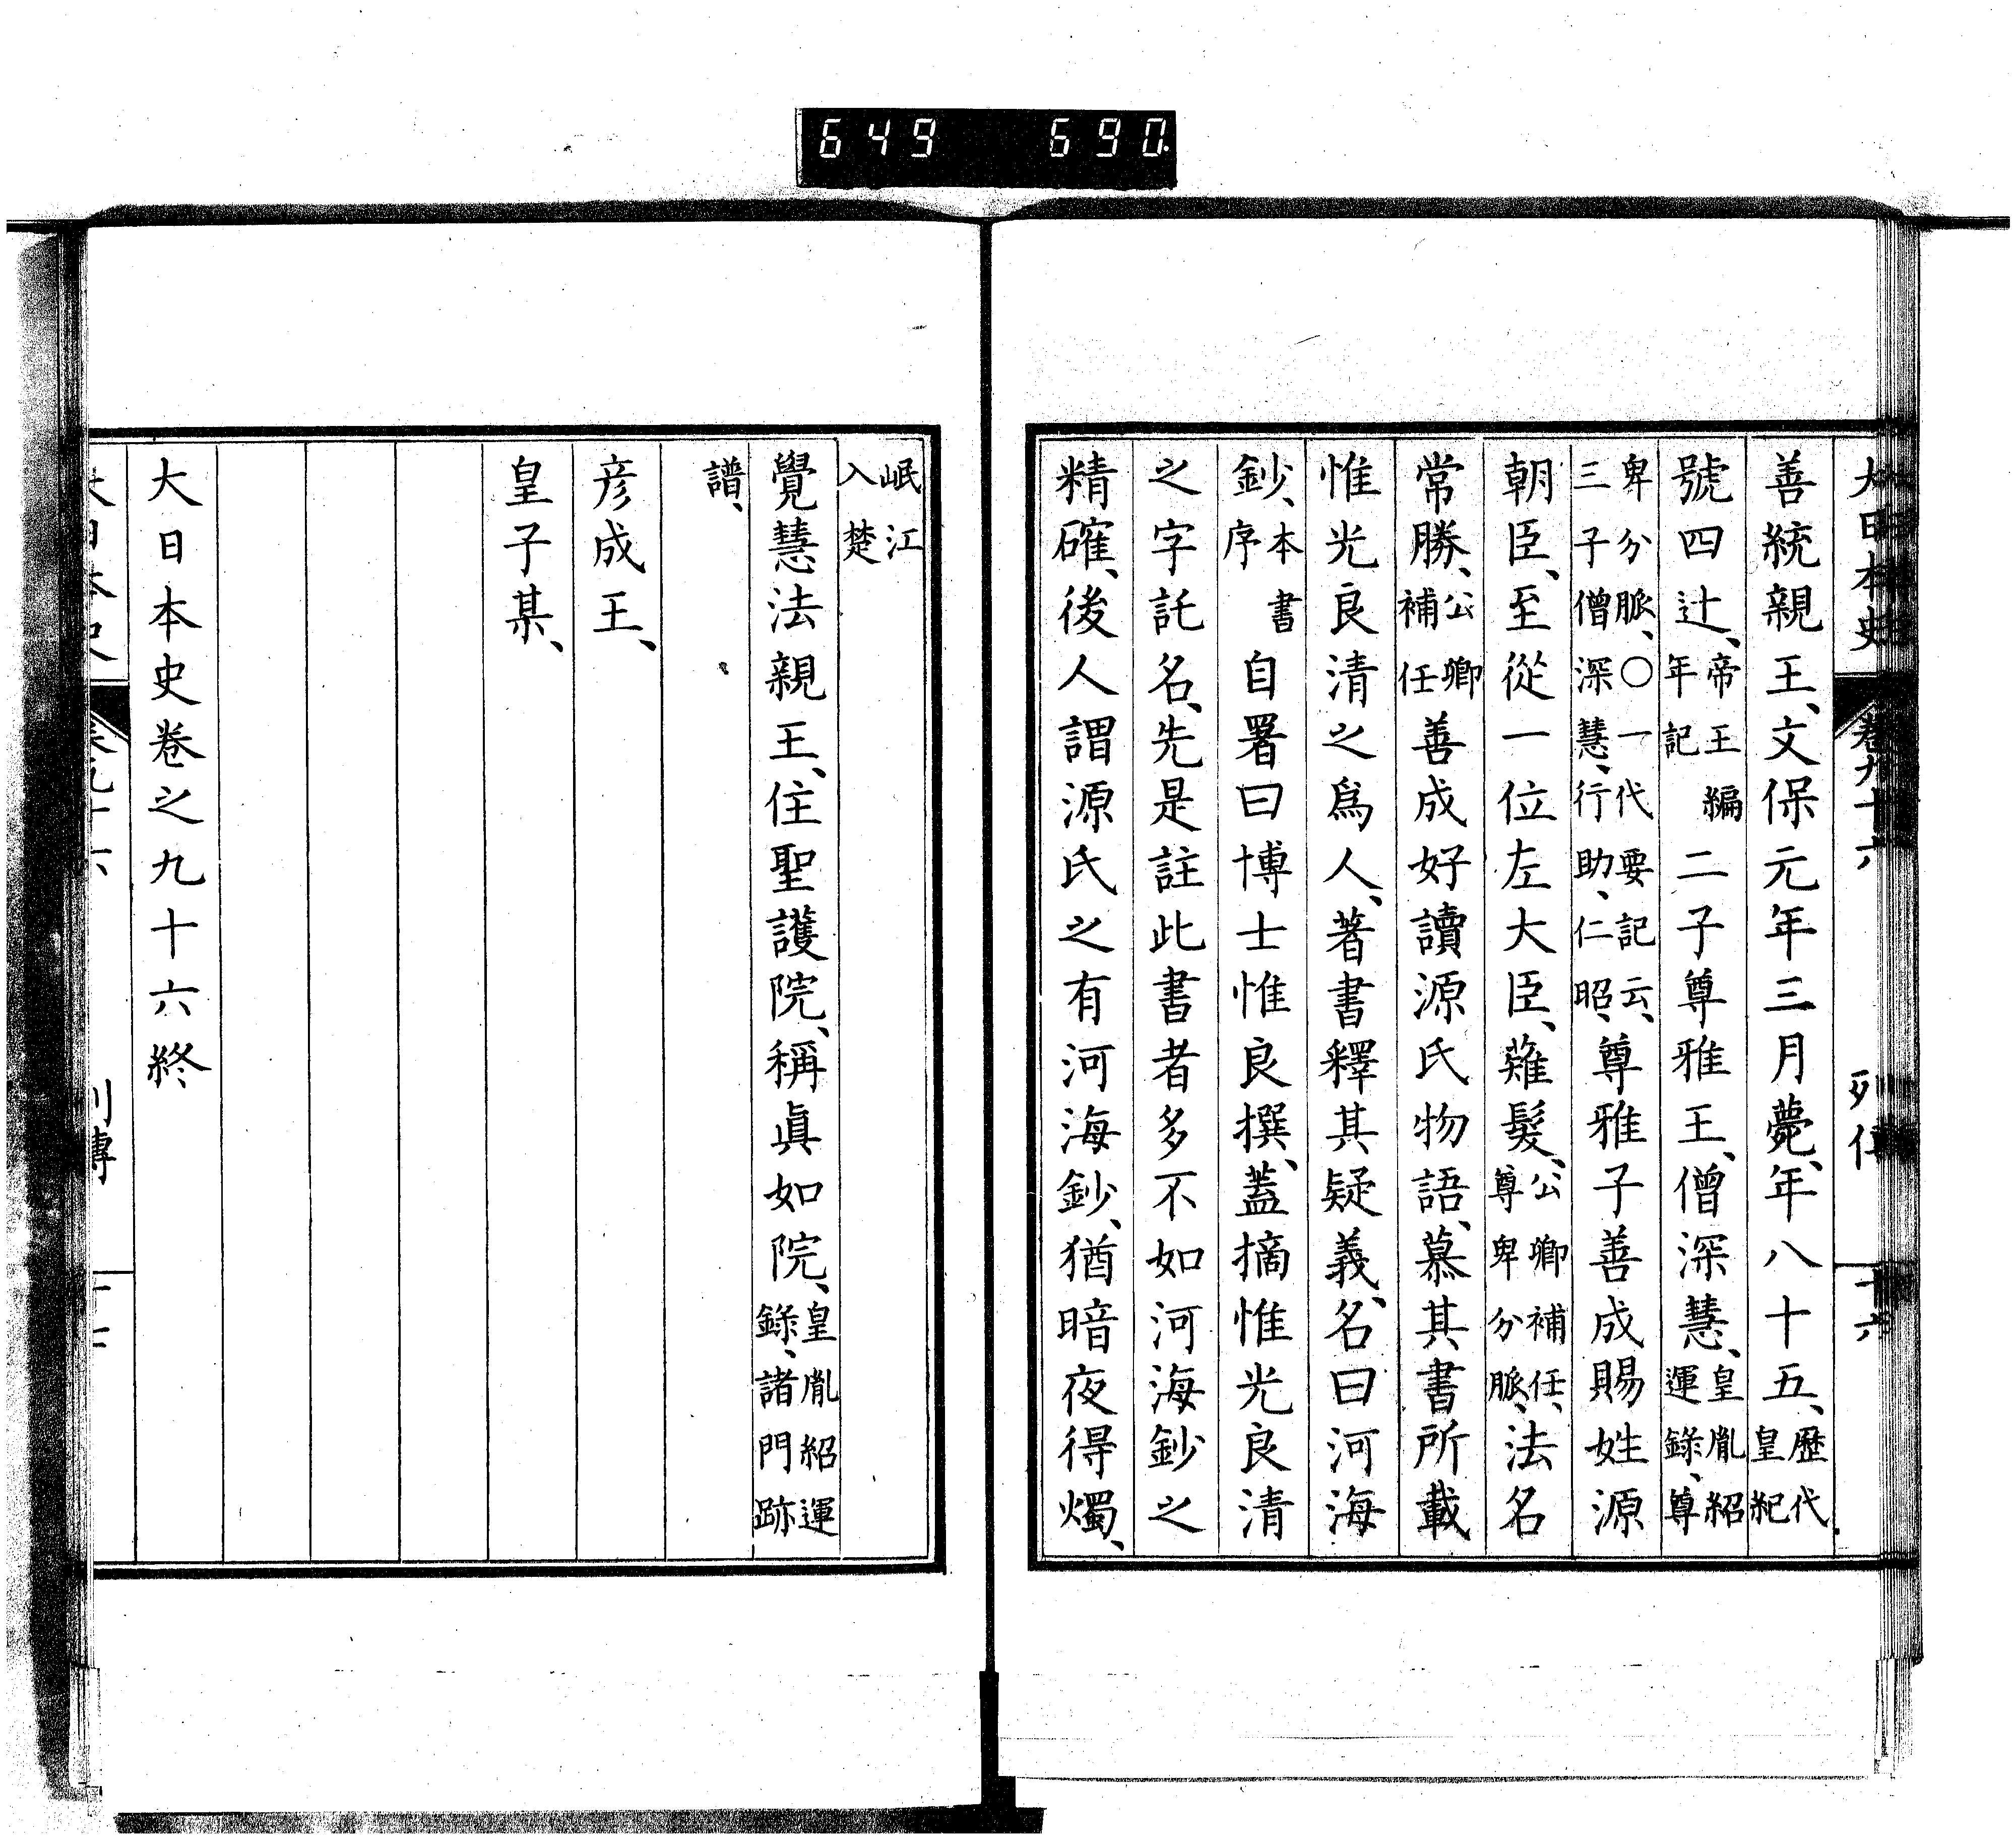 649 690
大日本史 卷九十六 列傳 十六
善統親王、文保元年三月薨、年八十五、歷代皇紀
號四辻、帝王編年記二子尊雅王、僧深慧、皇胤紹運錄、尊
卑分脈、〇一代要記云、三子僧深慧、行助、仁昭、尊雅子善成賜姓源
朝臣、至從一位左大臣、薙髮、公卿補任、尊卑分脈、法名
常勝、公卿補任善成好讀源氏物語、慕其書所載
惟光良清之爲人、著書釋其疑義、名曰河海
鈔、本書序自署曰博士惟良撰、蓋摘惟光良清
之字託名、先是註此書者多不如河海鈔之
精確、後人謂源氏之有河海鈔、猶暗夜得燭、
岷江入楚
覺慧法親王、住聖護院、稱眞如院、皇胤紹運錄、諸門跡
譜、
彦成王、
皇子某、
大日本史卷之九十六終
大日本史 卷九十六 列傳 十七